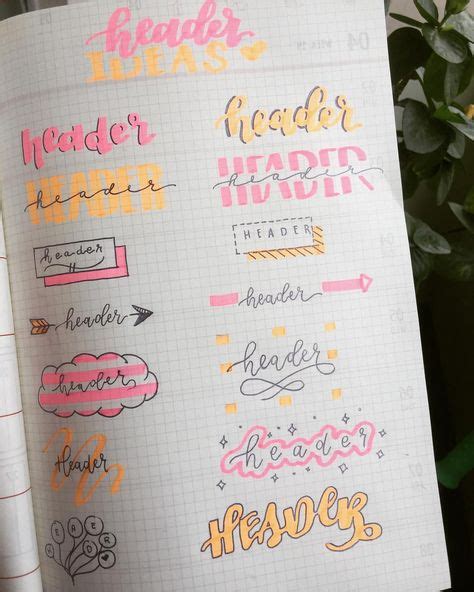 header
IDEAS
header header
HEADER header HEADER header
header HEADER
header header
header header
Header header
HEADER HEADER